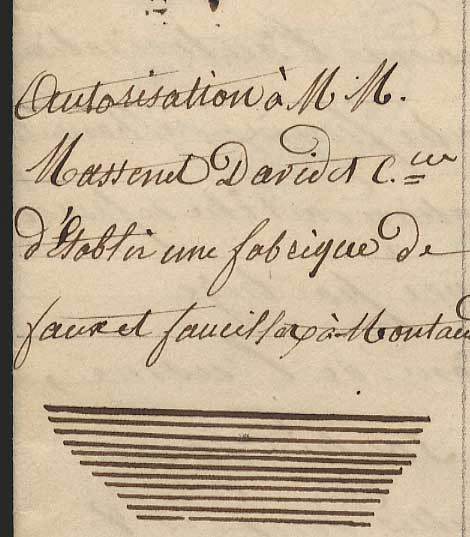 Autorisation à M M.
Massenet David & C.ie
d'établir une fabrique de
faux et faucilles à Montaud